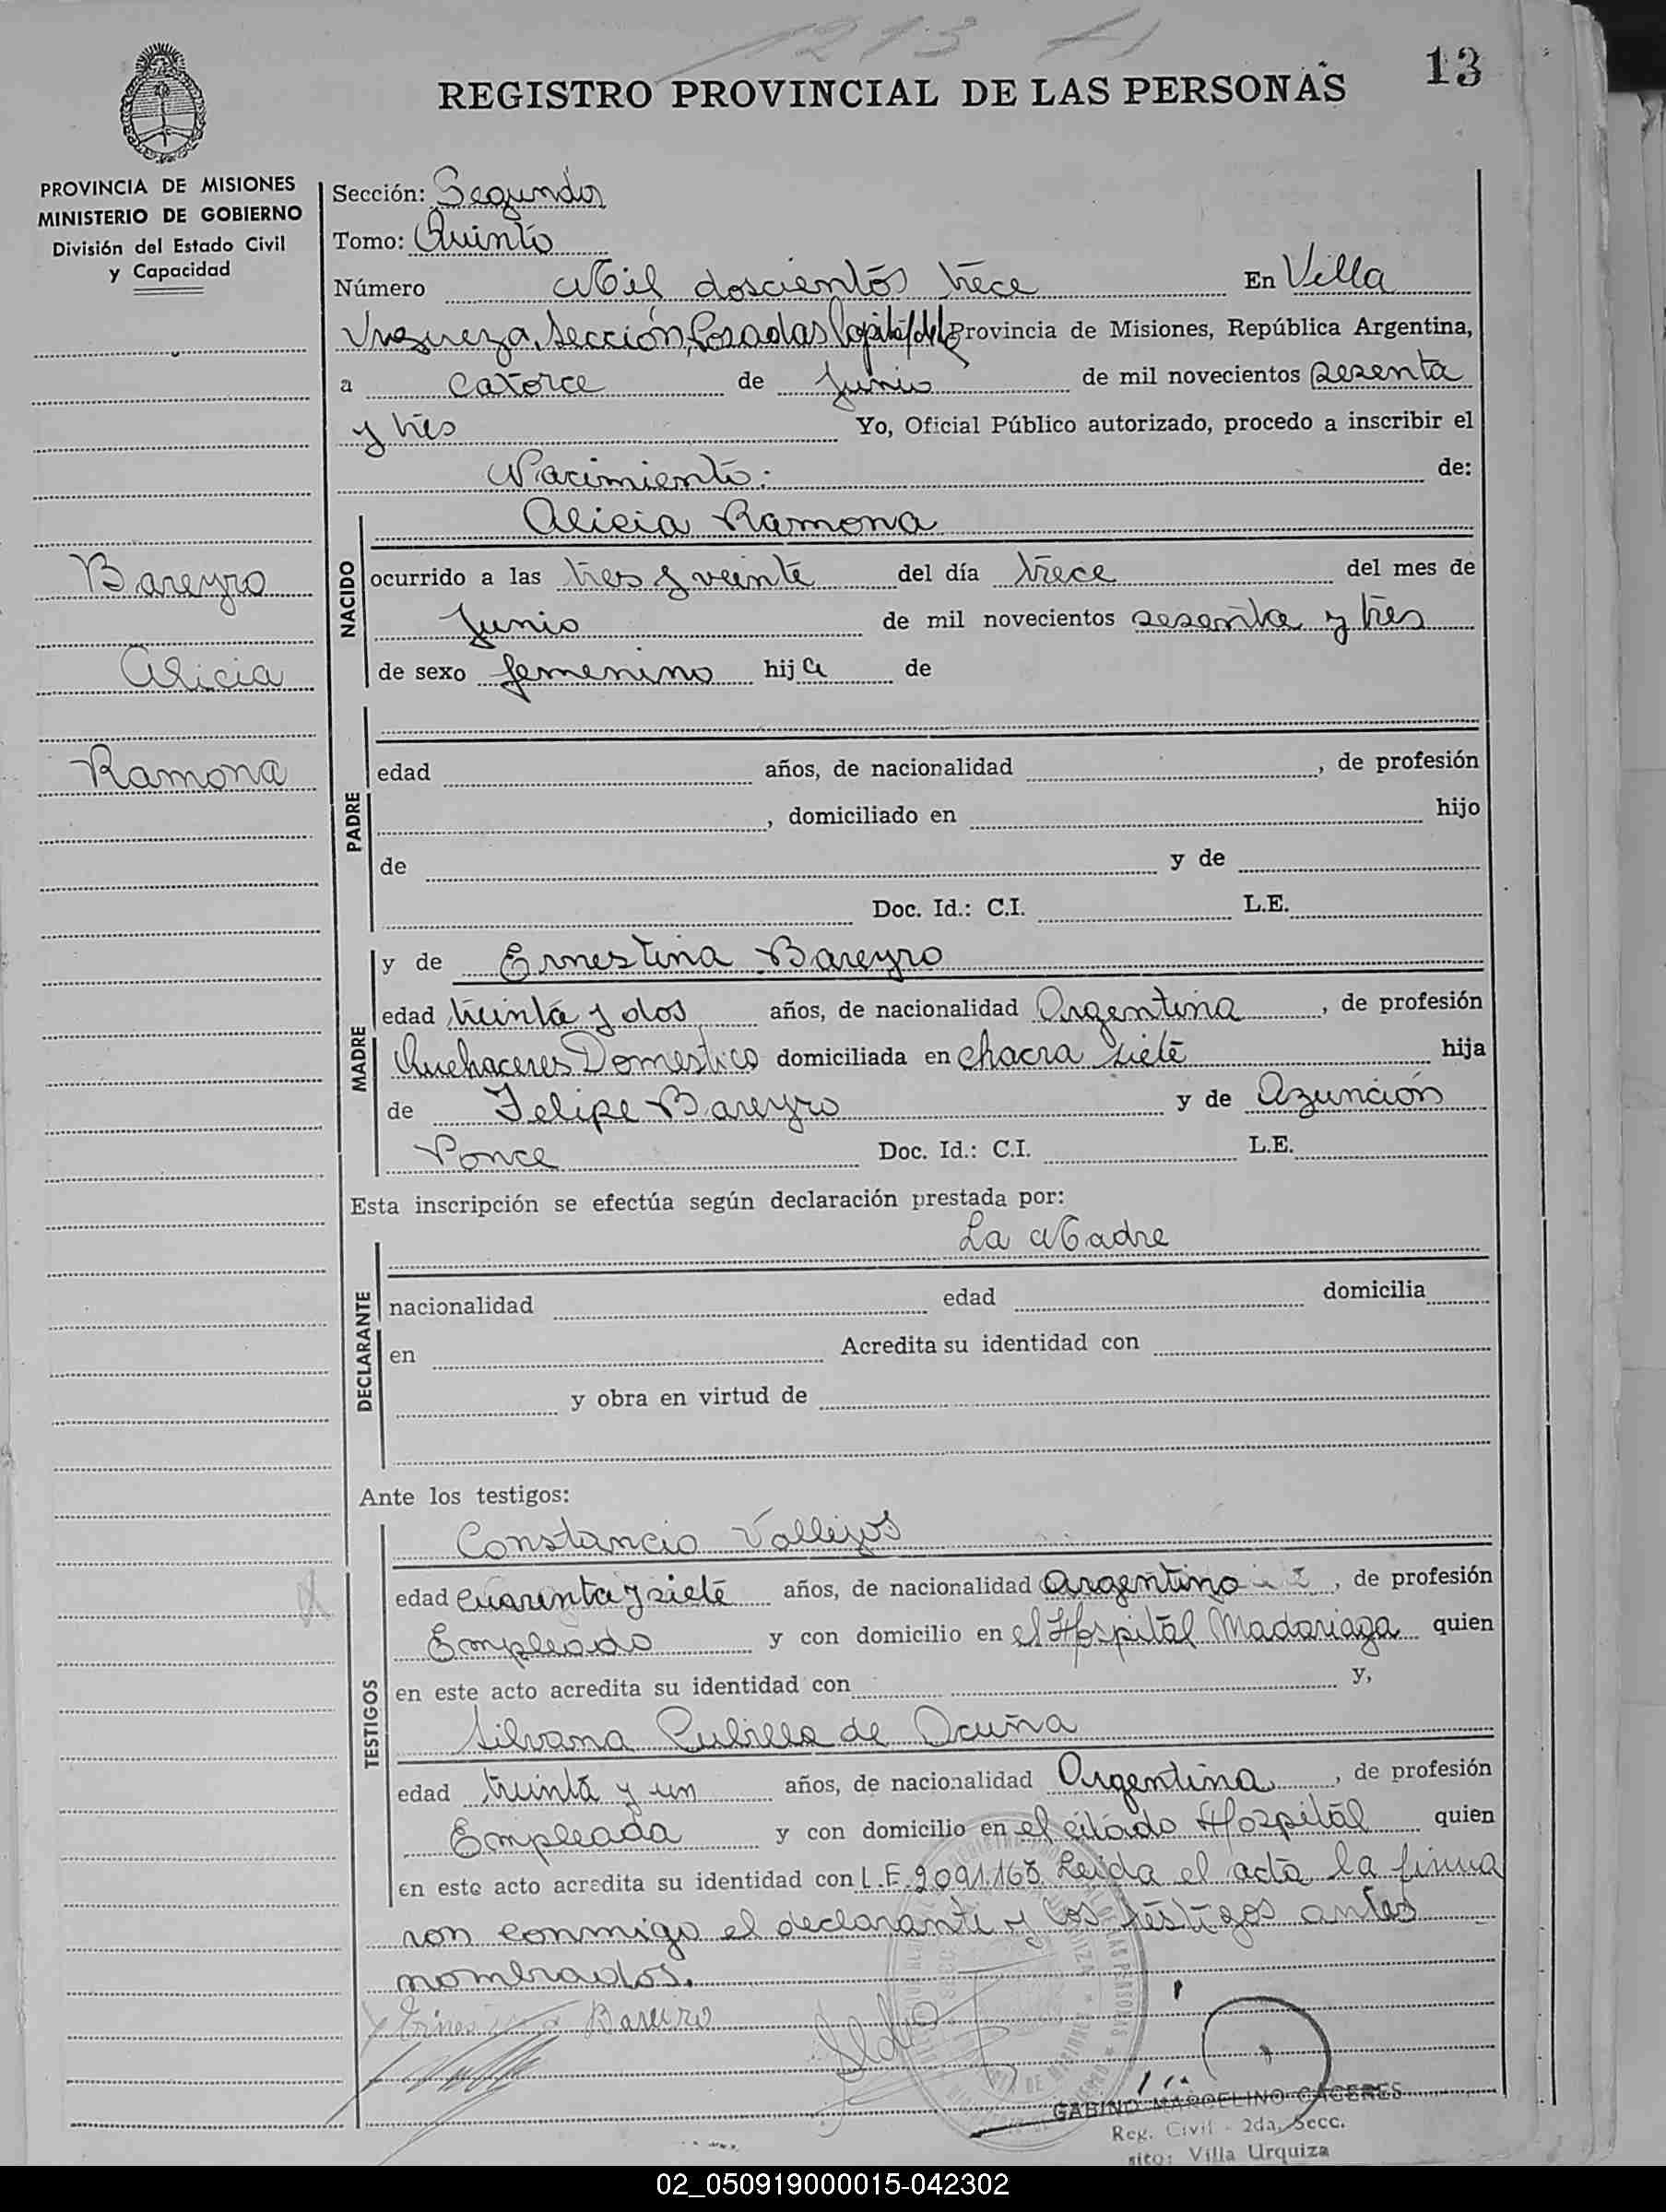 1213
13
REGISTRO PROVINCIAL DE LAS PERSONAS
PROVINCIA DE MISIONES
MINISTERIO DE GOBIERNO
División del Estado Civil
y Capacidad
Bareyro
Alicia
Ramona
Sección: Segunda
Tomo: Quinto
Número Mil doscientos trece En Villa
Urquiza, Sección, Posadas Capital de la Provincia de Misiones, República Argentina,
a catorce de Junio de mil novecientos sesenta
y tres Yo, Oficial Público autorizado, procedo a inscribir el
Nacimiento: de:
NACIDO
Alicia Ramona
ocurrido a las tres y veinte del día trece del mes de
Junio de mil novecientos sesenta y tres
de sexo femenino hija de
PADRE
edad años, de nacionalidad , de profesión
, domiciliado en hijo
de y de
Doc. Id.: C.I. L.E.
MADRE
y de Ernestina Bareyro
edad treinta y dos años, de nacionalidad Argentina , de profesión
Quehaceres Domestico domiciliada en chacra siete hija
de Felipe Bareyro y de Azunción
Ponce Doc. Id.: C.I. L.E.
Esta inscripción se efectúa según declaración prestada por:
La Madre
DECLARANTE
nacionalidad edad domicilia
en Acredita su identidad con
y obra en virtud de
Ante los testigos:
TESTIGOS
Constancio Vallejos
edad cuarenta y siete años, de nacionalidad Argentino , de profesión
Empleado y con domicilio en el Hospital Madariaga quien
en este acto acredita su identidad con y,
Silvana de Ocuña
edad treinta y un años, de nacionalidad Argentina , de profesión
Empleada y con domicilio en el citado Hospital quien
en este acto acredita su identidad con L.E. 2.091.168 Leida el acta la firma
ron conmigo el declarante y los testigos antes
nombrados.
Bareiro
GABINO MARCELINO CACERES
Reg. Civil - 2da. Secc.
sito: Villa Urquiza
02_050919000015-042302